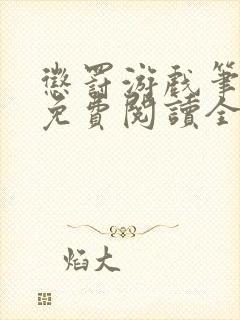 懲罰游戲筆
免費閱讀全
焰大